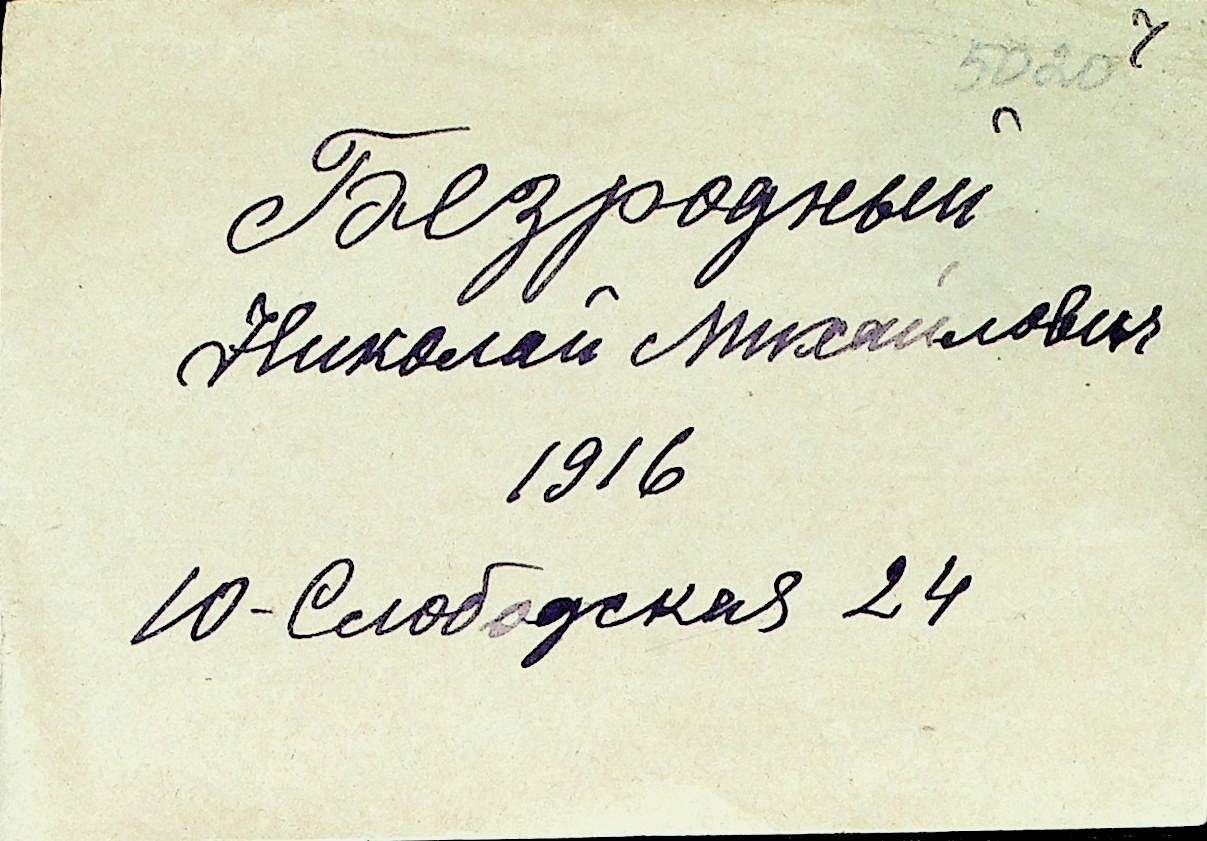 5020
Безродный
Николай Михайлович
1916
Ю-Слободская 24